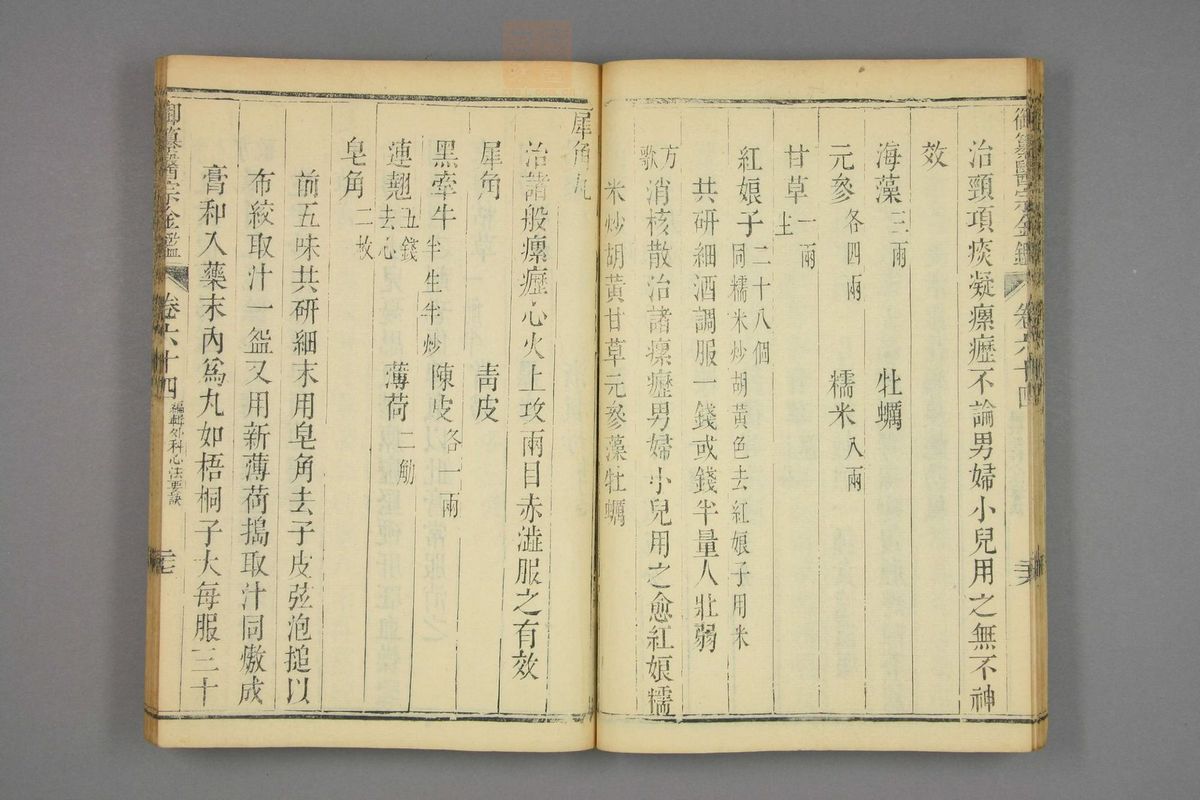 御纂醫宗金鑑 卷六十四 三六
治頸項痰凝瘰癧不論男婦小兒用之無不神
效
海藻三兩 牡蠣
元參各四兩 糯米八兩
甘草一兩生
紅娘子二十八個同糯米炒胡黃色去紅娘子用米
共研細酒調服一錢或錢半量人壯弱
方歌 消核散治諸瘰癧男婦小兒用之愈紅娘糯
米炒胡黃甘草元參藻牡蠣
犀角丸
治諸般瘰癧心火上攻兩目赤澁服之有效
犀角 青皮
黑牽牛半生半炒 陳皮各一兩
連翹五錢去心 薄荷二觔
皂角二枚
前五味共研細末用皂角去子皮弦泡搥以
布絞取汁一盌又用新薄荷搗取汁同熬成
膏和入藥末內爲丸如梧桐子大每服三十
御纂醫宗金鑑 卷六十四 編輯外科心法要訣 三七